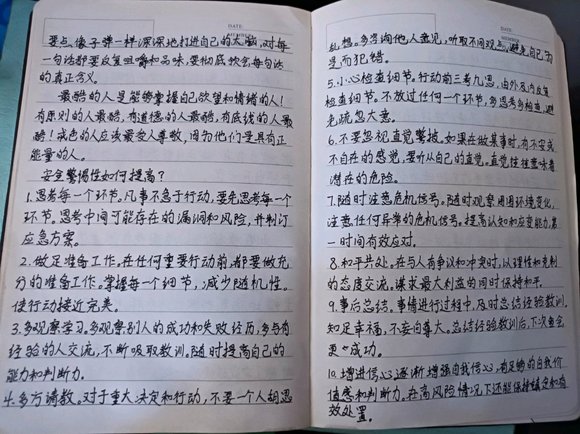 DATE:
要点像子弹一样深深地打进自己的大脑,对每
一句话都要反复咀嚼和品味,要彻底领会每句话
的真正含义。
最酷的人是能够掌握自己欲望和情绪的人!
有原则的人最酷,有道德的人最酷,有底线的人最
酷!戒色的人应该最受人尊敬,因为他们是具有正
能量的人。
安全警惕性如何提高?
1.思考每一个环节。凡事不急于行动,要先思考每一个
环节。思考中间可能存在的漏洞和风险,并制订
应急方案。
2.做足准备工作。在任何重要行动前,都要做充
分的准备工作。掌握每一个细节,减少随机性。
使行动接近完美。
3.多观察学习。多观察别人的成功和失败经历,多与有
经验的人交流,不断吸取教训。随时提高自己的
能力和判断力。
4.多方请教。对于重大决定和行动,不要一个人胡思
DATE:
乱想。多咨询他人意见,听取不同观点,避免自己
是而犯错。
5.小心检查细节。行动前三考几思,由外及内反复
检查细节。不放过任何一个环节,多思考多检查,避
免疏忽大意。
6.不要忽视直觉警报。如果在做某事时,有不安或
不自在的感觉,要听从自己的直觉。直觉往往意味着
潜在的危险。
7.随时注意危机信号。随时观察周围环境变化,
注意任何异常的危机信号。提高认知和应变能力,第
一时间有效应对。
8.和平共处。在与人有争议和冲突时,以理性和克制
的态度交流,谋求最大利益的同时保持和平。
9.事后总结。事情进行过程中,及时总结经验教训,
知足幸福,不妄自尊大。总结经验教训后,下次更会
更成功。
10.增进信心。逐渐增强自我信心,有足够的自我价
值感和判断力。在高风险情况下还能保持镇定和有
效处置。